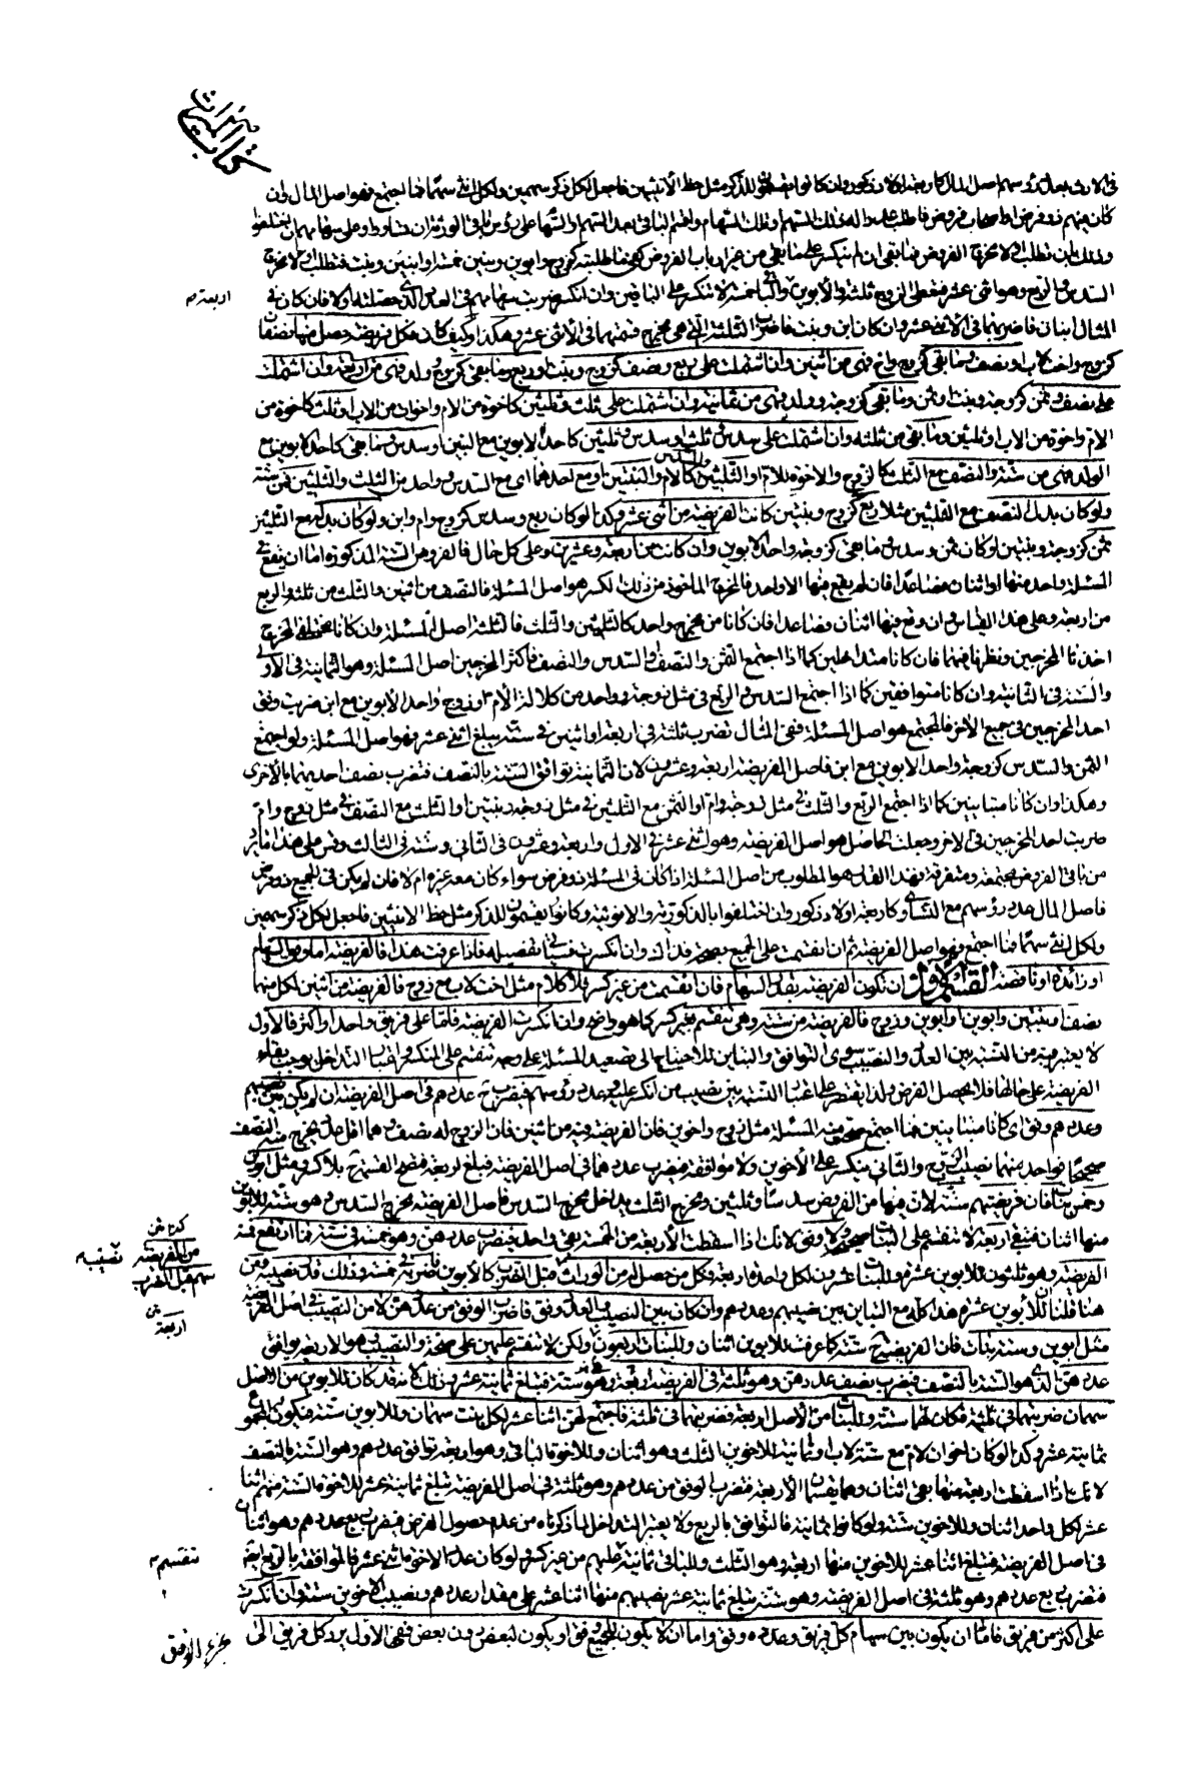 كتاب الميراث
في الارث بعدد رؤسهم اصل المال كاربعة اولاد ذكور وان كانوا يقتسمون للذكر مثل حظ الانثيين فاجعل لكل ذكر سهمين ولكل انثى سهما فما اجتمع فهو اصل المال وان
كان فيهم ذو فرض او اصحاب فروض فاطلب عددا له ذلك السهم او تلك السهام واقسم الباقي بعد السهم او السهام على رؤس باقي الورثة ان تساووا وعلى سهامهم ان اختلفوا
وذلك بان تطلب اولا مخرج الفروض فما بقي ان لم ينكسر على ما بقي من غير ارباب الفروض كفى ما طلبته كزوج وابوين وبنين خمسة او ابنين وبنت فتطلب اولا مخرج
السدس والربع وهو اثنى عشر فتعطي الزوج ثلثة والابوين اربعة والباقي خمسة لا تنكسر على الباقين وان انكسر ضربت سهامهم في العدد الذي حصلته اولا فان كان في
المثال ابنان فاضربهما في الاثنى عشر وان كان ابن وبنت فاضرب الثلثة التي هي مخرج قسمتهما في الاثنى عشر وهكذا وكيف كان فكل فريضة حصل منها نصفان
كزوج واخت لاب او نصف وما بقي كزوج واخ فهي من اثنين وان اشتملت على ربع ونصف كزوج وبنت او ربع وما بقي كزوج وولد فهي من اربعة وان اشتملت
على نصف وثمن كزوجة وبنت او ثمن وما بقي كزوجة وولد فهي من ثمانية وان اشتملت على ثلث وثلثين كاخوة من الام واخوات من الاب او ثلث كاخوة من
الام واخوة من الاب او ثلثين وما بقي من ثلثة وان اشتملت على سدس وثلث او سدس وثلثين كاحد الابوين مع البنتين او سدس وما بقي كاحد الابوين مع
الولد فهي من ستة والنصف مع الثلث كالزوج والاخوة للام او الثلثين والسدس كالام والبنتين او مع احدهما اي مع السدس وواحد من الثلث والثلثين فمن ستة
ولو كان بدل النصف مع الثلثين مثلا ربع كزوج وبنتين كانت الفريضة من اثنى عشر وكذا لو كان ربع وسدس كزوج وام وابن ولو كان بدله مع الثلثين
ثمن كزوجة وبنتين او كان ثمن وسدس وما بقي كزوجة واحد الابوين وابن كانت من اربعة وعشرين وعلى كل حال فالفروض الستة المذكورة اما ان يقع في
المسئلة واحد منها او اثنان فصاعدا فان لم يقع فيها الا واحد فالمخرج الماخوذ من ذلك الكسر هو اصل المسئلة فالنصف من اثنين والثلث من ثلثة والربع
من اربعة وعلى هذا القياس وان وقع فيها اثنان فصاعدا فان كانا من مخرج واحد كالثلثين والثلث فالثلثة اصل المسئلة وان كانا مختلفي المخرج
اخذنا المخرجين ونظرنا فيهما فان كانا متداخلين كما اذا اجتمع الثمن والنصف او السدس والنصف فاكثر المخرجين اصل المسئلة وهو الثمانية في الاول
والستة في الثانية وان كانا متوافقين كما اذا اجتمع السدس والربع في مثل زوجة وواحد من كلالة الام او زوج واحد الابوين مع ابن ضربت وفق
احد المخرجين في جميع الآخر فالمجتمع هو اصل المسئلة ففي المثال تضرب ثلثة في اربعة او اثنين في ستة يبلغ اثنى عشر فهو اصل المسئلة ولو اجتمع
الثمن والسدس كزوجة واحد الابوين مع ابن فاصل الفريضة اربعة وعشرون لان الثمانية توافق الستة بالنصف فتضرب نصف احدهما بالاخرى
وهكذا وان كانا متباينين كما اذا اجتمع الربع والثلث في مثل زوجة وام او الثمن مع الثلثين في مثل زوجة وبنتين او الثلث مع النصف في مثل زوج وام
ضربت احد المخرجين في الاخر وجعلت الحاصل هو اصل الفريضة وهو اثنى عشر في الاول واربعة وعشرون في الثاني وستة في الثالث وقس على هذا ما يرد
من باقي الفروض مجتمعة ومتفرقة فهذا القدر هو المطلوب من اصل المسئلة اذا كان في المسئلة ذو فرض سواء كان معه غيره ام لا فان لم يكن في الجميع ذو فرض
فاصل المال عدد رؤسهم مع التساوي كاربعة اولاد ذكور وان اختلفوا بالذكورية والانوثية وكانوا يقتسمون للذكر مثل حظ الانثيين فاجعل لكل ذكر سهمين
ولكل انثى سهما فما اجتمع فهو اصل الفريضة ثم ان انقسمت على الجميع بصحة فذاك وان انكسرت فسياتي تفصيله فاذا عرفت هذا فالفريضة اما وفق السهام
او زائدة او ناقصة القسم الاول ان تكون الفريضة بقدر السهام فان انقسمت من غير كسر فلا كلام مثل اخت لاب مع زوج فالفريضة من اثنين لكل منهما
نصف او بنتين وابوين او ابوين وزوج فالفريضة من ستة وهي تنقسم بغير كسر كما هو واضح وان انكسرت الفريضة فاما على فريق واحد او اكثر فالاول
لا يعتبر فيه من النسبة بين العدد والنصيب سوى التوافق والتباين للاحتياج الى تصعيد المسئلة على وجه تنقسم على المنكسر واعتبار التداخل يوجب بقاء
الفريضة على حالها فلا يحصل الغرض ولذا يقتصر على اعتبار النسبة بين نصيب من انكسر عليه وعدد رؤسهم فيضرب ح عددهم في اصل الفريضة ان لم يكن بين نصيبهم
وعددهم وفق اي كانا متباينين فما اجتمع صحت منه المسئلة مثل زوج واخوين فان الفريضة فيه من اثنين فان الزوج له نصف وهما اقل عدد يخرج منه النصف
صحيحا فواحد منهما نصيب الزوج والثاني ينكسر على الاخوين ولا موافقة فيضرب عددهما في اصل الفريضة فتبلغ اربعة فتصح القسمة ح بلا كسر ومثل ابوين
وخمس بنات فان فريضتهم ستة لان فيها من الفروض سدسا وثلثين ومخرج الثلث يداخل مخرج السدس فاصل الفريضة مخرج السدس وهو ستة للابوين
منها اثنان فتبقى اربعة لا تنقسم على البنات صحيحة ولا وفق لانك اذا اسقطت الاربعة من الخمسة بقي واحد فيضرب عددهن وهو خمسة في ستة فما ارتفع فمنه
الفريضة وهو ثلثون للابوين عشرة وللبنات عشرون لكل واحدة اربعة وكل من حصل له من الوراث قبل الضرب كالابوين ضربته في خمسة وذلك قدر نصيبه فمن
هنا قلنا ان للابوين عشرة هذا كله مع التباين بين نصيبهم وعددهم وان كان بين النصيب والعدد وفق فاضرب الوفق من عددهن لا من النصيب في اصل الفريضة
مثل ابوين وستة بنات فان الفريضة ح ستة كما عرفت للابوين اثنان وللبنات اربعة ولكن لا تنقسم عليهن على صحة والنصيب هو الاربعة يوافق
عددهن الذي هو الستة بالنصف فيضرب نصف عددهن وهو ثلثة في الفريضة وهو ستة فيبلغ ثمانية عشر وذلك لانه قد كان للابوين من الاصل
سهمان ضربتهما في ثلثة فكان لهما ستة وللبنات من الاصل اربعة فضربتها في ثلثة فاجتمع لهن اثنا عشر لكل بنت سهمان وللابوين ستة فيكون المجموع
ثمانية عشر وكذا لو كان اخوان لام مع ستة لاب او ثمانية للاخوين الثلث وهو اثنان وللاخوة الباقي وهو اربعة توافق عددهم وهو الستة بالنصف
لانك اذا اسقطت اربعة منها بقي اثنان وهما يفنيان الاربعة فتضرب الوفق من عددهم وهو ثلثة في اصل الفريضة تبلغ ثمانية عشر للاخوة الستة منهم اثنا
عشر لكل واحد اثنان وللاخوين ستة ولو كانوا ثمانية فالتوافق بالربع ولا يعتبر التداخل لما ذكرناه من عدم حصول الغرض فيضرب ربع عددهم وهو اثنان
في اصل الفريضة فتبلغ اثنا عشر للاخوين منها اربعة وهو الثلث وللباقي ثمانية عليهم من غير كسر ولو كان عدد الاخوة اثنى عشر فالموافقة بالربع ايضا
فتضرب ربع عددهم وهو ثلثة في اصل الفريضة وهو ستة تبلغ ثمانية عشر نصيبهم منها اثنا عشر على مقدار عددهم ونصيب الاخوين ستة وان انكسرت
على اكثر من فريق فاما ان يكون بين سهام كل فريق وعدده وفق واما ان لا يكون للجميع وفق او يكون لبعض دون بعض ففي الاول يرد كل فريق الى
اربعة م
من الفريضة
سهم قبل الضرب
نصيبه م
اربعة
تنقسم م
جزء الوفق